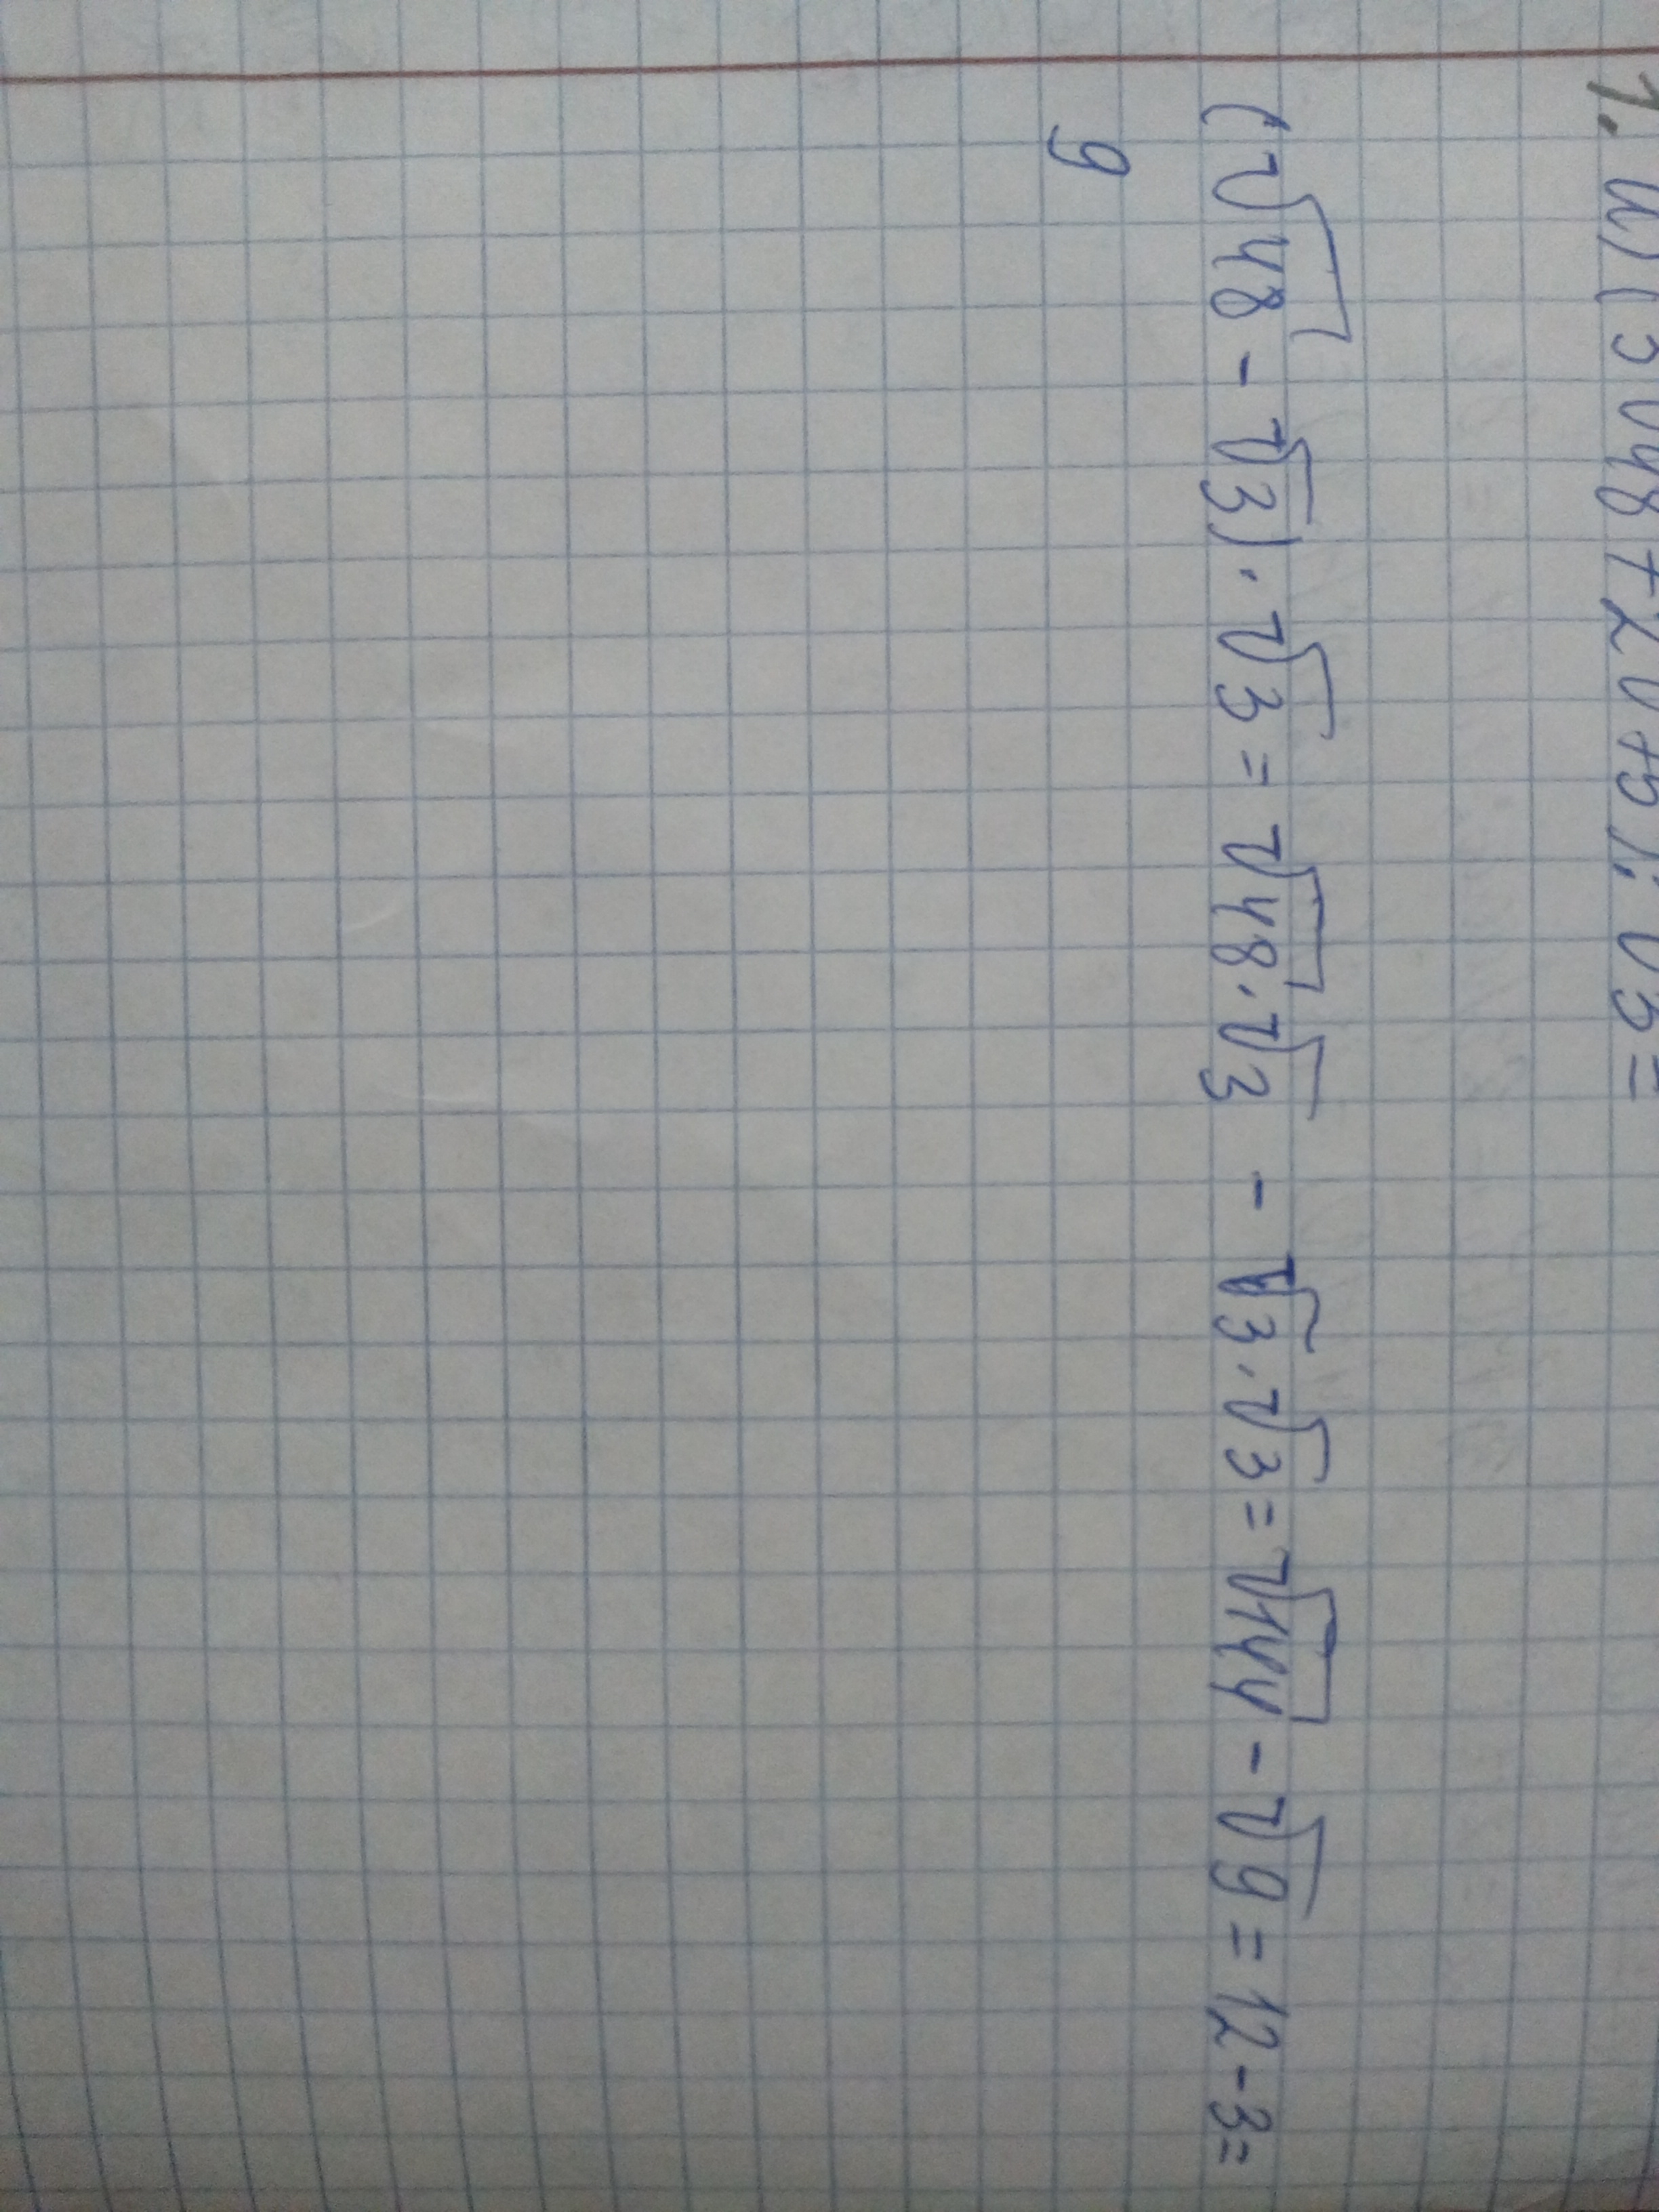 1. а) (3√48 + 2√75) : √3 =
(√48 - √3) · √3 = √48 · √3 - √3 · √3 = √144 - √9 = 12 - 3 =
9